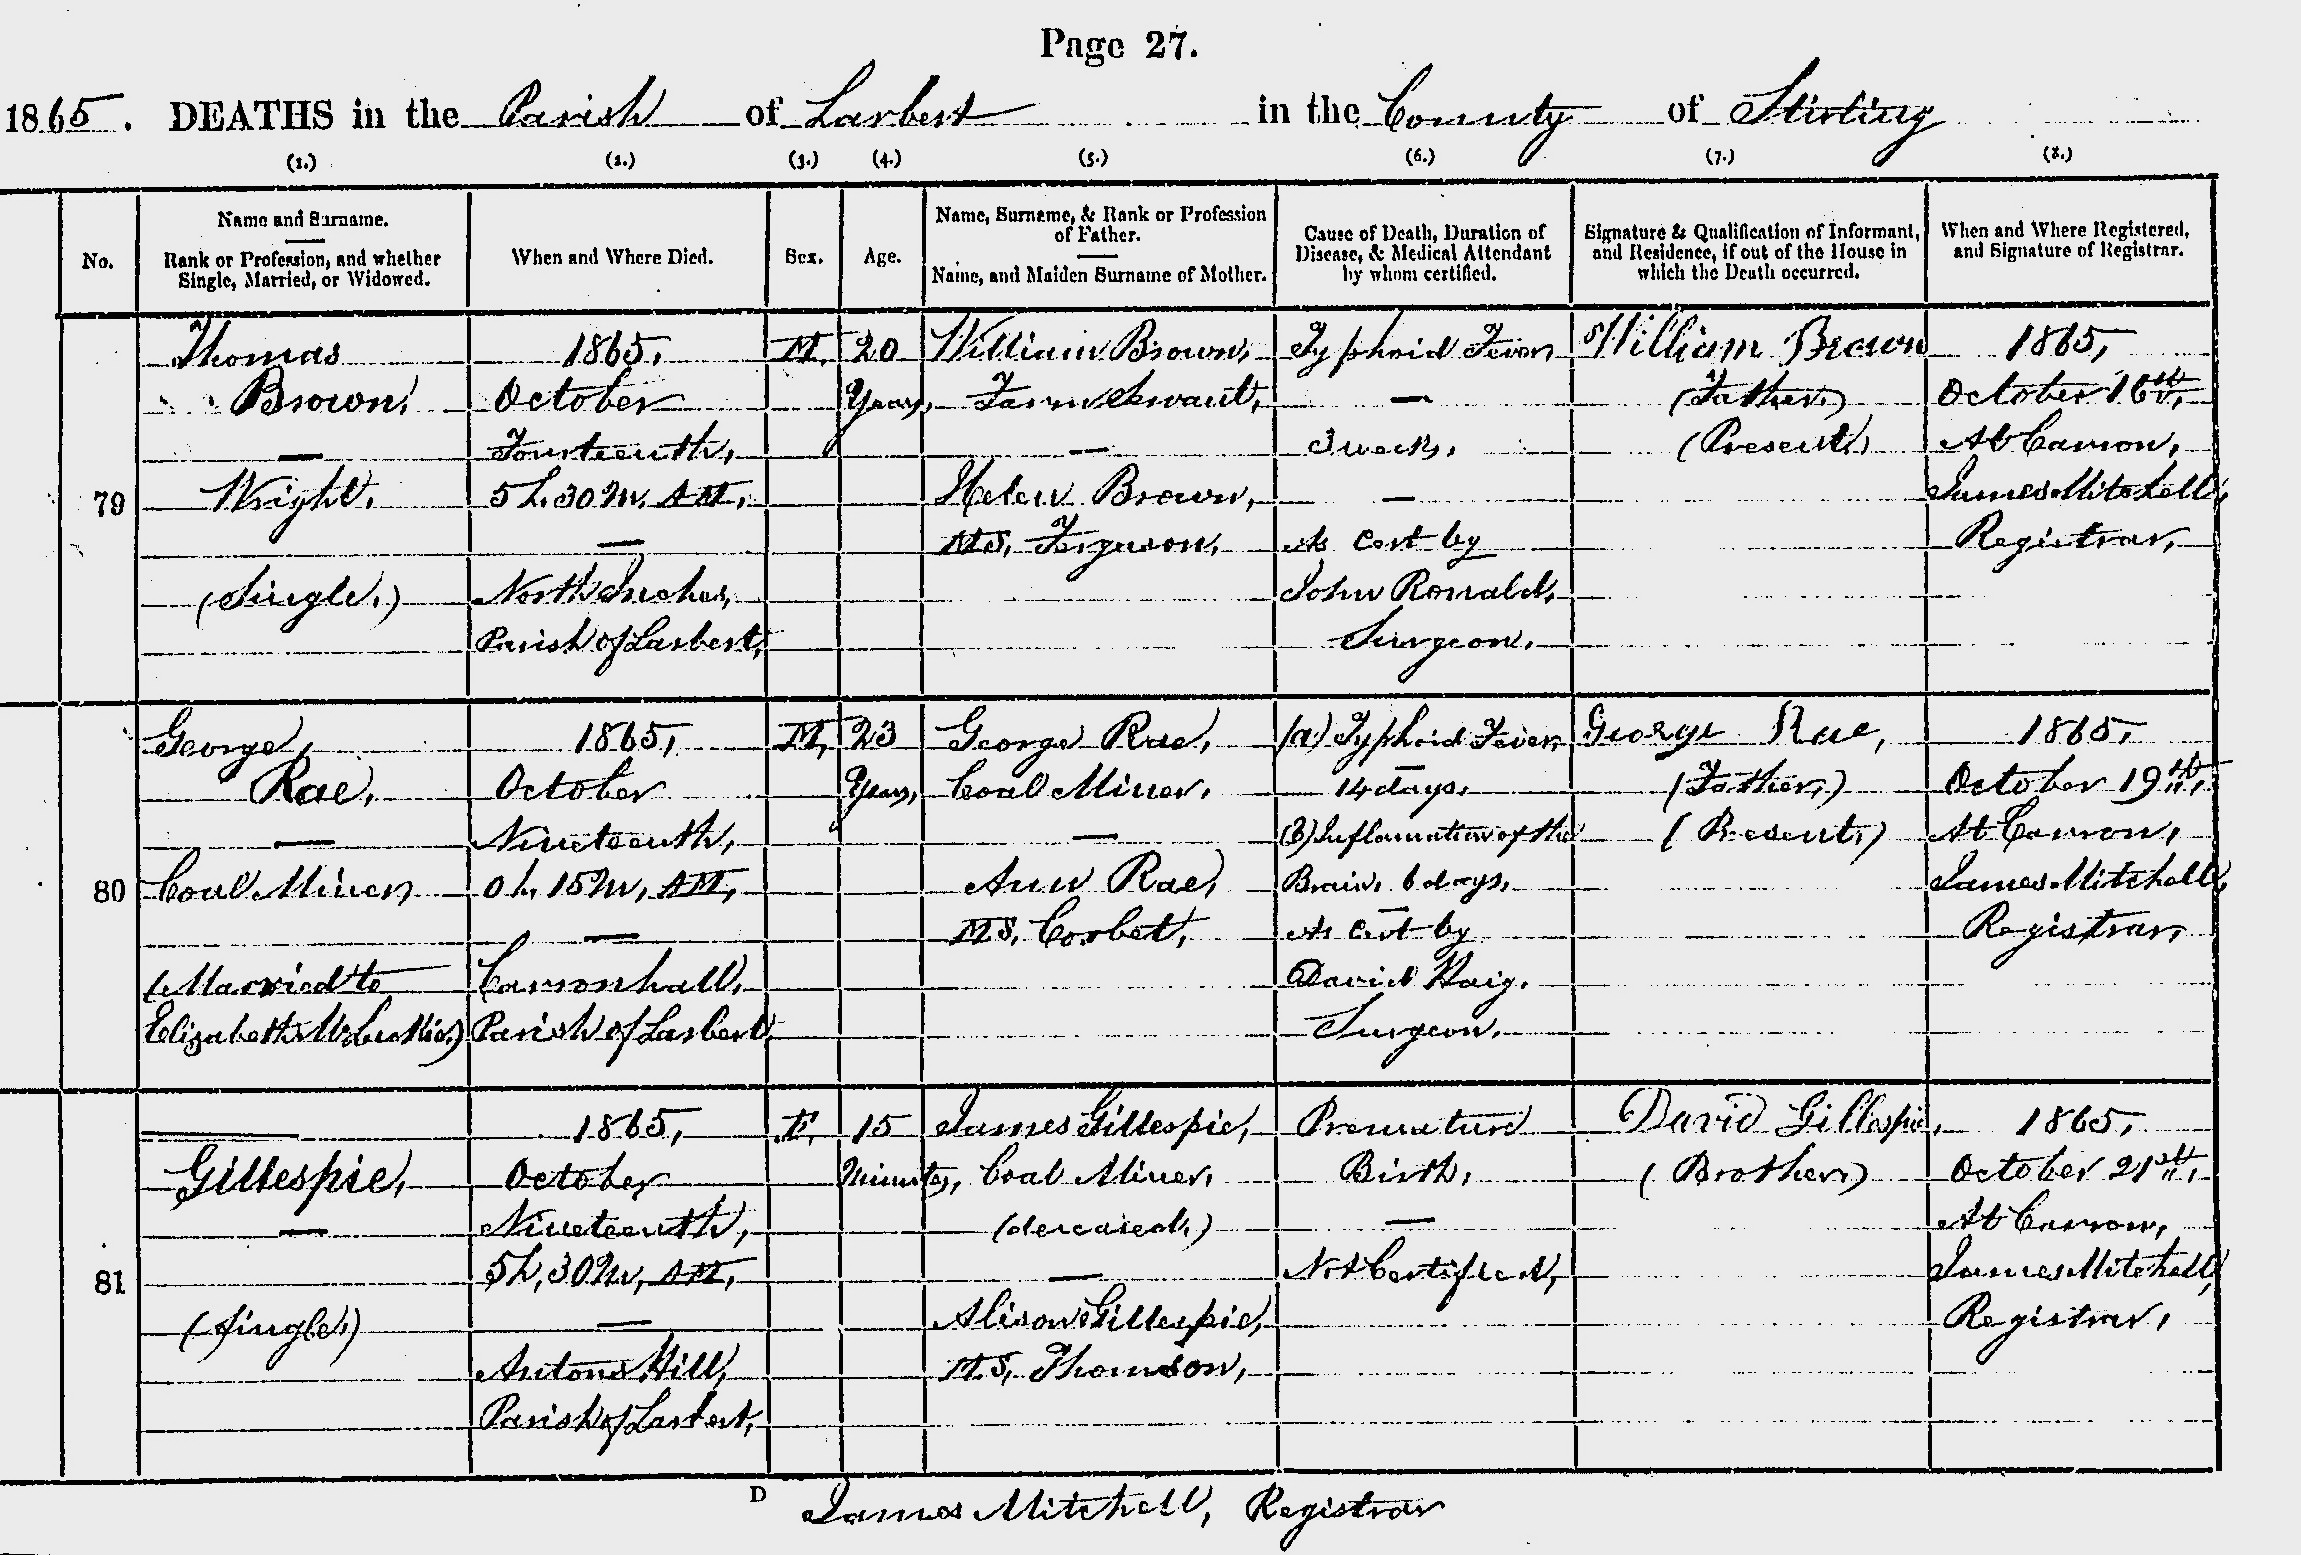 Page 27.
1865. DEATHS in the Parish of Larbert in the County of Stirling
(1.) (2.) (3.) (4.) (5.) (6.) (7.) (8.)
No.
Name and Surname.
Rank or Profession, and whether
Single, Married, or Widowed.
When and Where Died.
Sex.
Age.
Name, Surname, & Rank or Profession
of Father.
Name, and Maiden Surname of Mother.
Cause of Death, Duration of
Disease, & Medical Attendant
by whom certified.
Signature & Qualification of Informant,
and Residence, if out of the House in
which the Death occurred.
When and Where Registered,
and Signature of Registrar.
79
Thomas
Brown,
Wright,
(Single,)
1865,
October
Fourteenth,
5 h, 30 m, AM,
North Inches,
Parish of Larbert,
M,
20
Years,
William Brown,
Farm Servant,
Helen Brown,
M.S, Ferguson,
Typhoid Fever,
3 weeks,
As cert by
John Ronald,
Surgeon,
William Brown
(Father,)
(Present,)
1865,
October 16th,
At Carron,
James Mitchell,
Registrar,
80
George,
Rae,
Coal Miner,
(Married to
Elizabeth McLuckie,)
1865,
October
Nineteenth,
0 h, 15 m, AM,
Carronhall,
Parish of Larbert,
M,
23
Years,
George Rae,
Coal Miner,
Ann Rae,
M.S, Corbet,
(a) Typhoid Fever,
14 days,
(b) Inflamation of the
Brain, 6 days,
As cert by
David Haig,
Surgeon,
George Rae,
(Father,)
(Present,)
1865,
October 19th,
At Carron,
James Mitchell,
Registrar,
81
Gillespie,
(Single,)
1865,
October
Nineteenth,
5 h, 30 m, AM,
Antons Hill,
Parish of Larbert,
F,
15
Minutes,
James Gillespie,
Coal Miner,
(deceased,)
Alison Gillespie,
M.S, Thomson,
Premature
Birth,
Not Certified,
David Gillespie,
(Brother)
1865,
October 21st,
At Carron,
James Mitchell,
Registrar,
D
James Mitchell, Registrar